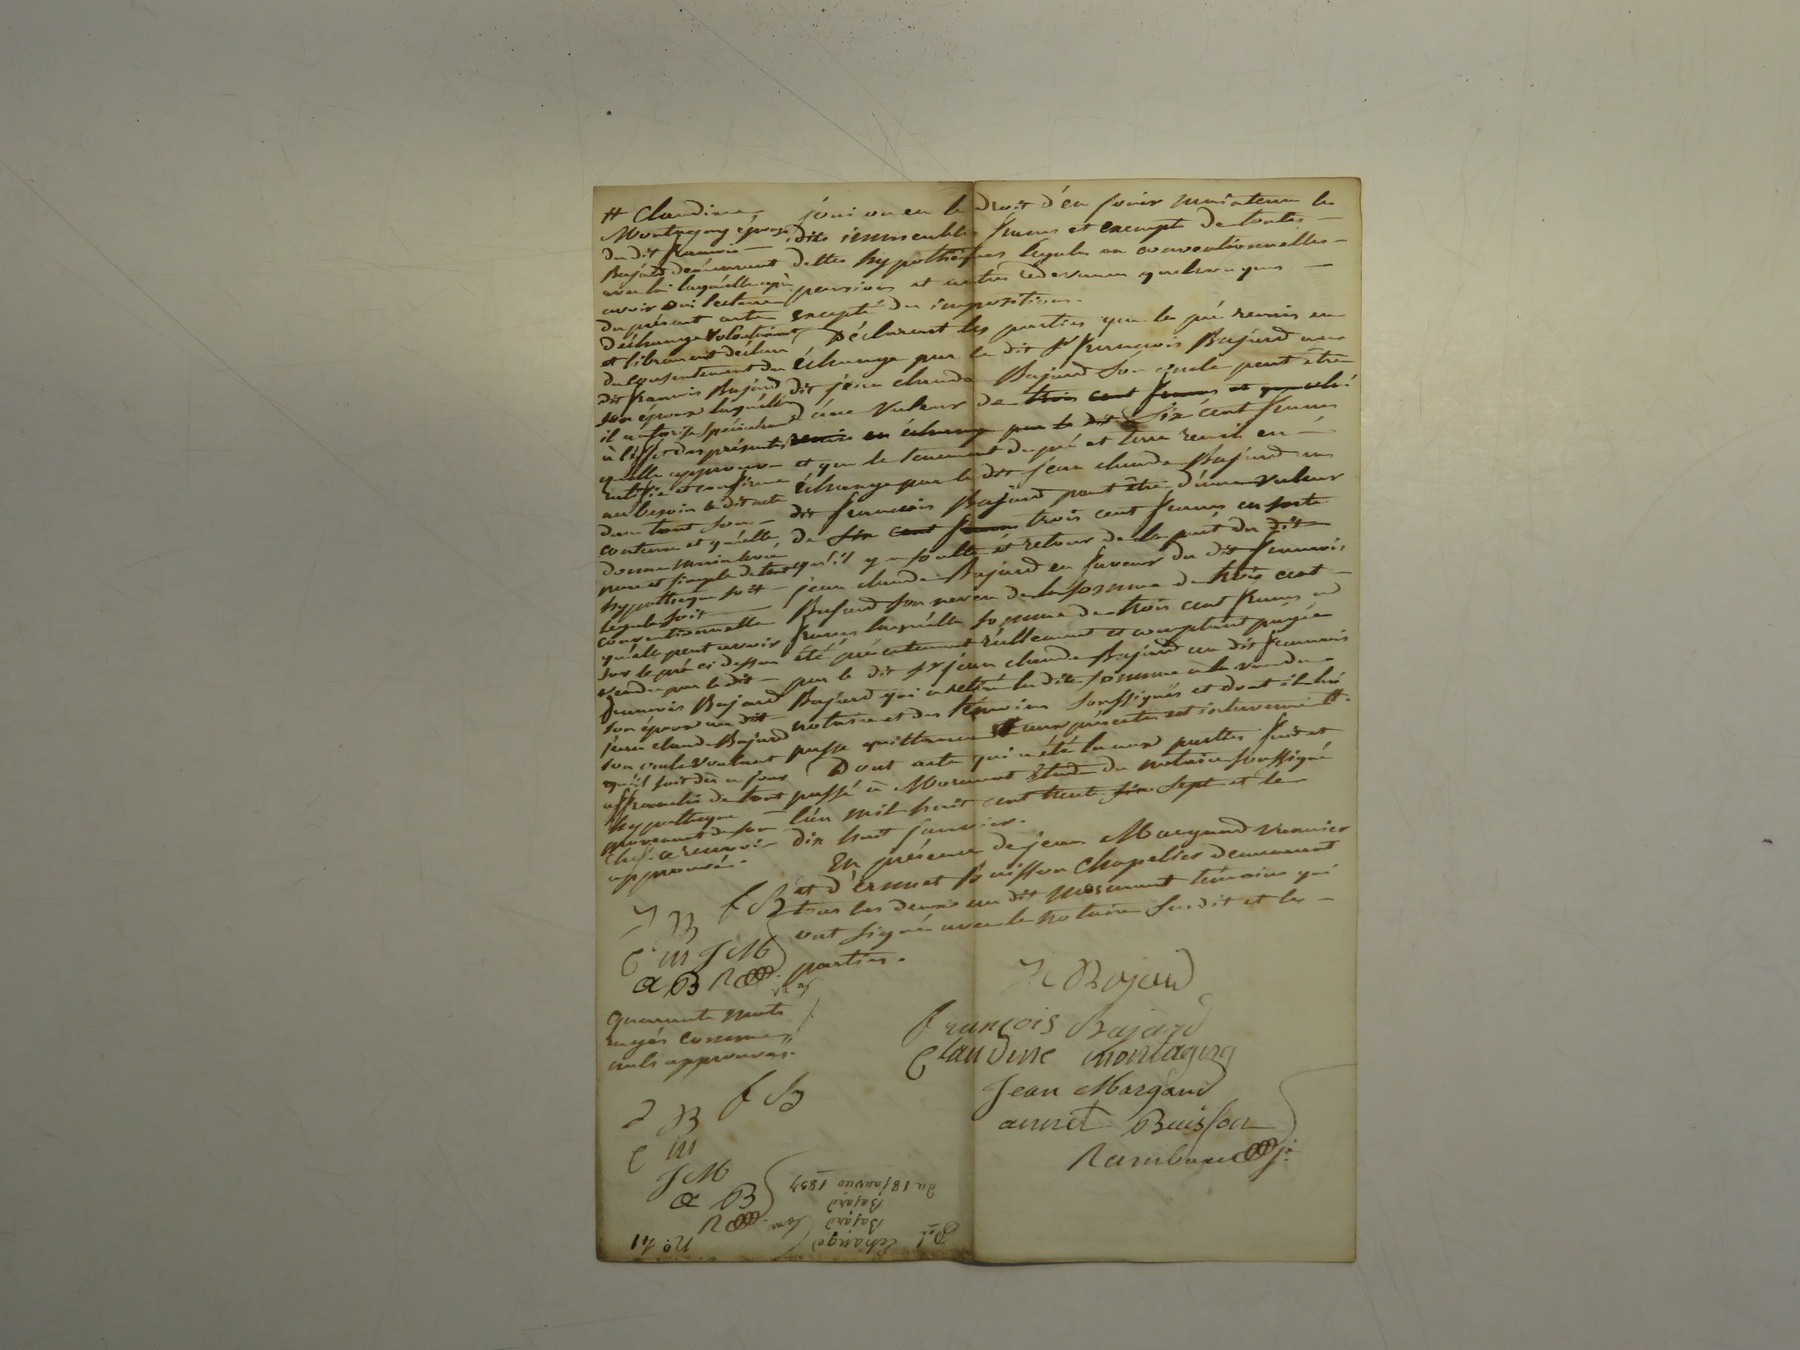 # Claudine
Montagny épouse
du dit francois
Bajard demeurant
avec lui laquelle après
avoir oui lecture
du présent acte
d'échange volontairemt
et librement déclare
du consentement du
dit francois Bajard
son époux laquelle
il autorise spécialement
à l'effet des présentes
quelle approuve
ratifie et confirme
au besoin le dit acte
dans tout son
contenu et quelle
donne main levée
pure et simple de tout
hypothèque soit
legale soit
conventionnelle
quelle peut avoir
sur le pré ci dessus
vendu par le dit
francois Bajard
son époux au dit
jean claude Bajard
son oncle voulant
qu'il soit dès ce jour
affranchi de tout
hypothèque
provenant de son
chef. ce renvoi
approuvé.
J B f B
C m J M
a B R
quarante mots
rayés comme
nuls approuvés.
J B f B
C m
J M
a B
R
joui ou eu le droit d'en jouir maintenir les
dits immeubles francs et exempts de toutes
dettes hypothèques legales ou conventionnelles
pensions et autres redevances quelconques
excepté des impositions.
Déclarent les parties que le pré remis en
échange par le dit Sr francois Bajard au
dit jean claude Bajard son oncle peut être
d'une valeur de trois cent francs et que celui
remis en échange par le dit six cent francs
et que le tenement de pré et terre remis en
échange par le dit jean claude Bajard au
dit francois Bajard peut être d'une valeur
de six cent francs trois cent francs en sorte
qu'il y a soulte et retour de la part du dit
jean claude Bajard en faveur du dit francois
Bajard son neveu de la somme de trois cent
francs laquelle somme de trois cent francs a
été présentement réellement et comptant payée
par le dit Sr jean claude Bajard au dit francois
Bajard qui a retiré la dite somme à la vue du
notaire et des témoins soussignés et dont il lui
passe quittance aux présentes est intervenue #.
Dont acte qui a été lu aux parties fait et
passé à Mornant étude du notaire soussigné
l'an mil huit cent trente six sept et le
dix huit janvier.
En présence de jean Margand
et d'ennet Buisson chapelier demeurant
tous les deux au dit Mornant témoins qui
ont signé avec le notaire susdit et les
parties.
J C Bajard
françois Bajard
Claudine montagny
Jean Margand
annet Buisson
Rambaud
Echange
Bajard
Bajard
du 18 janvier 1837